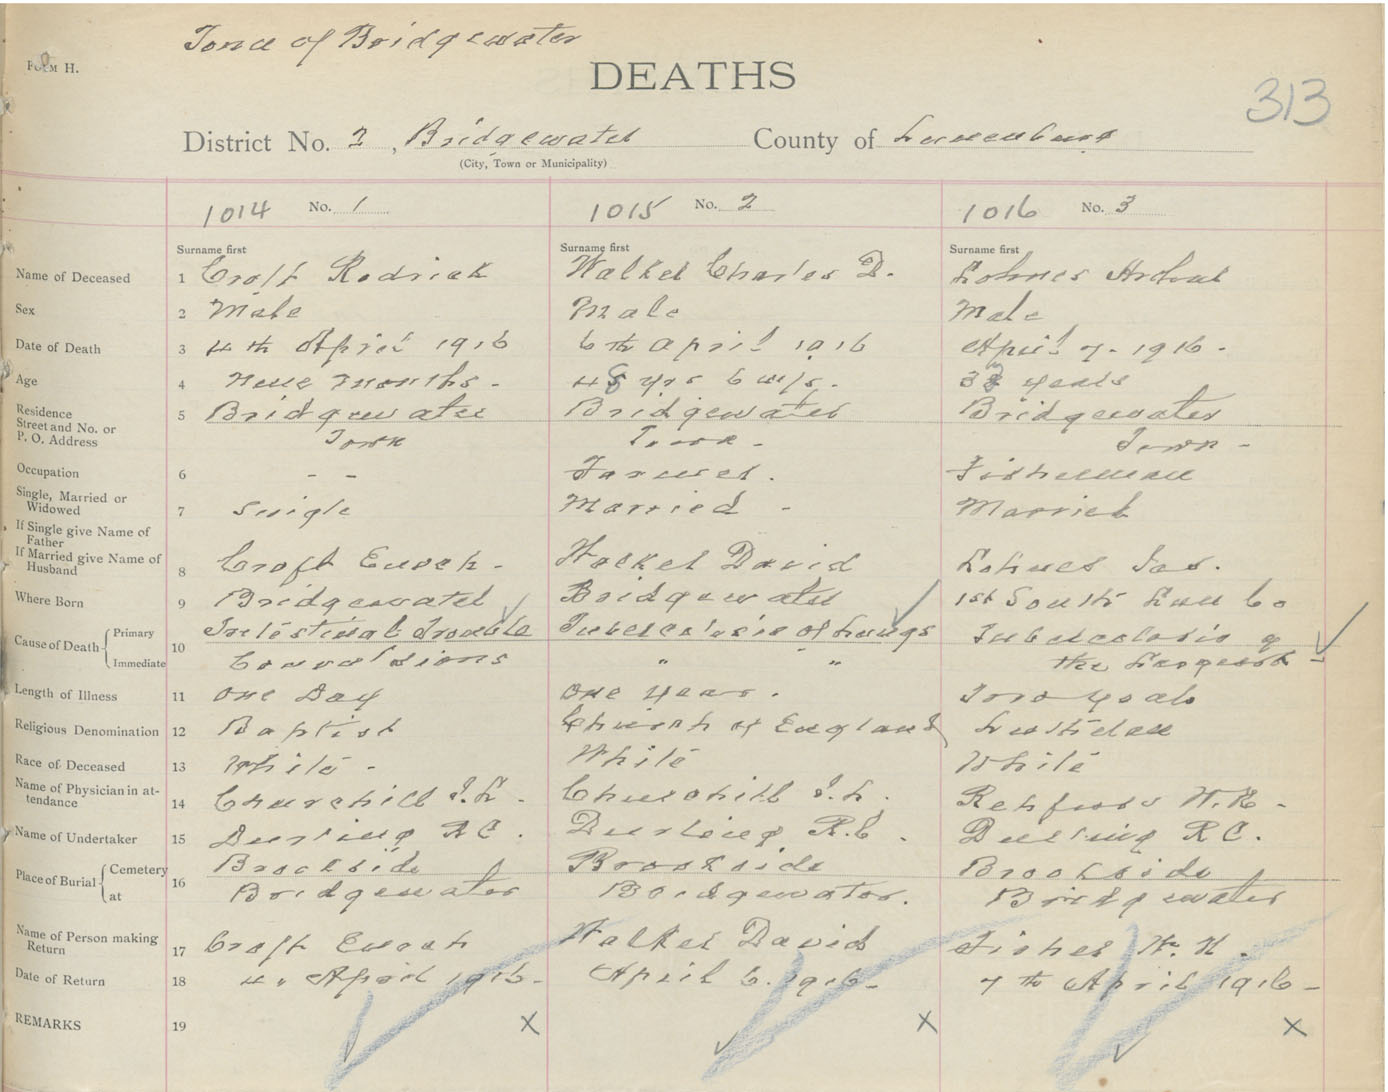 Town of Bridgewater
FORM H.
DEATHS
313
District No. 2, Bridgewater County of Lunenburg
(City, Town or Municipality)
1014 No. 1 1015 No. 2 1016 No. 3
Surname first Surname first Surname first
Name of Deceased 1 Croft Rodrick Walker Charles D. Lohnes Arthur
Sex 2 Male Male Male
Date of Death 3 4th April 1916 6th April 1916 April 7 - 1916 -
Age 4 months - yrs 6 years
Residence
Street and No. or
P. O. Address 5 Bridgewater Bridgewater Bridgewater
Town Town - Town -
Occupation 6 - - Farmer. Fisherman
Single, Married or
Widowed 7 Single Married - Married
If Single give Name of
Father
If Married give Name of
Husband 8 Croft Enoch - Walker David Lohnes Jas.
Where Born 9 Bridgewater Bridgewater 1st South Lun Co
Cause of Death Primary 10 Intestinal Trouble Tuberculosis of Lungs Tuberculosis of
Immediate Convulsions " " " the
Length of Illness 11 One Day One Year. Two years
Religious Denomination 12 Baptist Church of England Lutheran
Race of Deceased 13 White - White White
Name of Physician in at-
tendance 14 Churchill J.L. Churchill J.L. Rehfuss W.N.
Name of Undertaker 15 R C. R.C. R C.
Place of Burial Cemetery 16 Brookside Brookside Brookside
at Bridgewater Bridgewater. Bridgewater
Name of Person making
Return 17 Croft Enoch Walker David Fisher W. H.
Date of Return 18 4. April 1916- April 6. 1916- 7th April 1916-
REMARKS 19 X X X